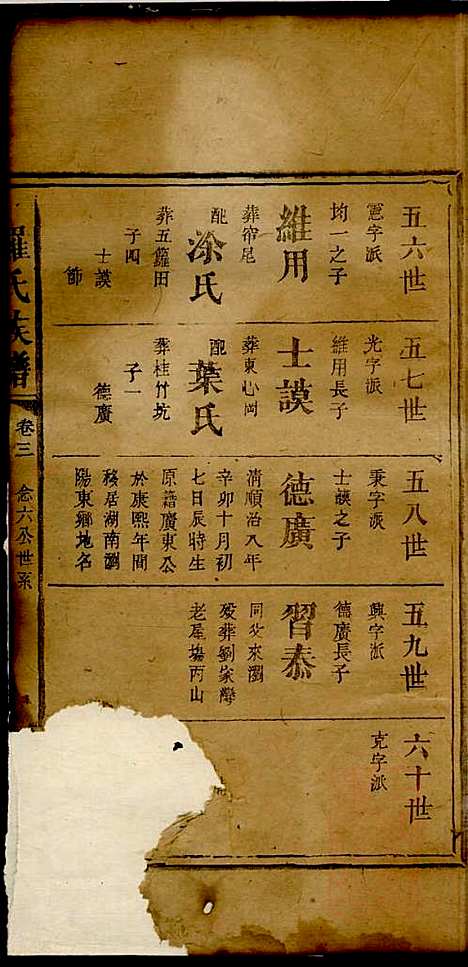 五六世
憲字派
均一之子
維用
葬帘尾
配
涂氏
葬五籮田
子四
士謨
節
五七世
光字派
維用長子
士謨
葬東心岡
配
葉氏
葬桂竹坑
子一
德廣
五八世
秉字派
士謨之子
德廣
清順治八年
辛卯十月初
七日辰時生
原籍廣東公
於康熙年間
移居湖南瀏
陽東鄉地名
五九世
興字派
德廣長子
習泰
同父來瀏
歿葬劉家灣
老屋塲丙山
六十世
克字派
羅氏族譜
卷三
念六公世系